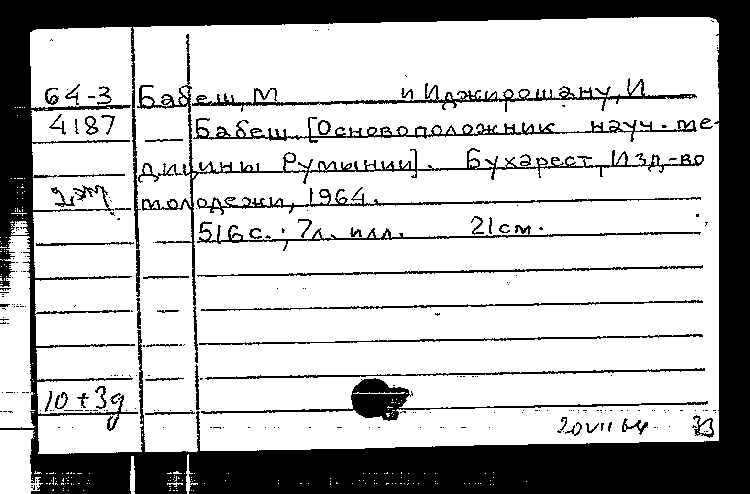 64-3 Бабеш, М и Иджирошану, И
4187 Бабеш. [Основоположник науч. ме-
дицины Румынии]. Бухарест, Изд-во
2эт молодежи, 1964.
516 с.; 7л. илл. 21см.
10+3д
20 VII 64